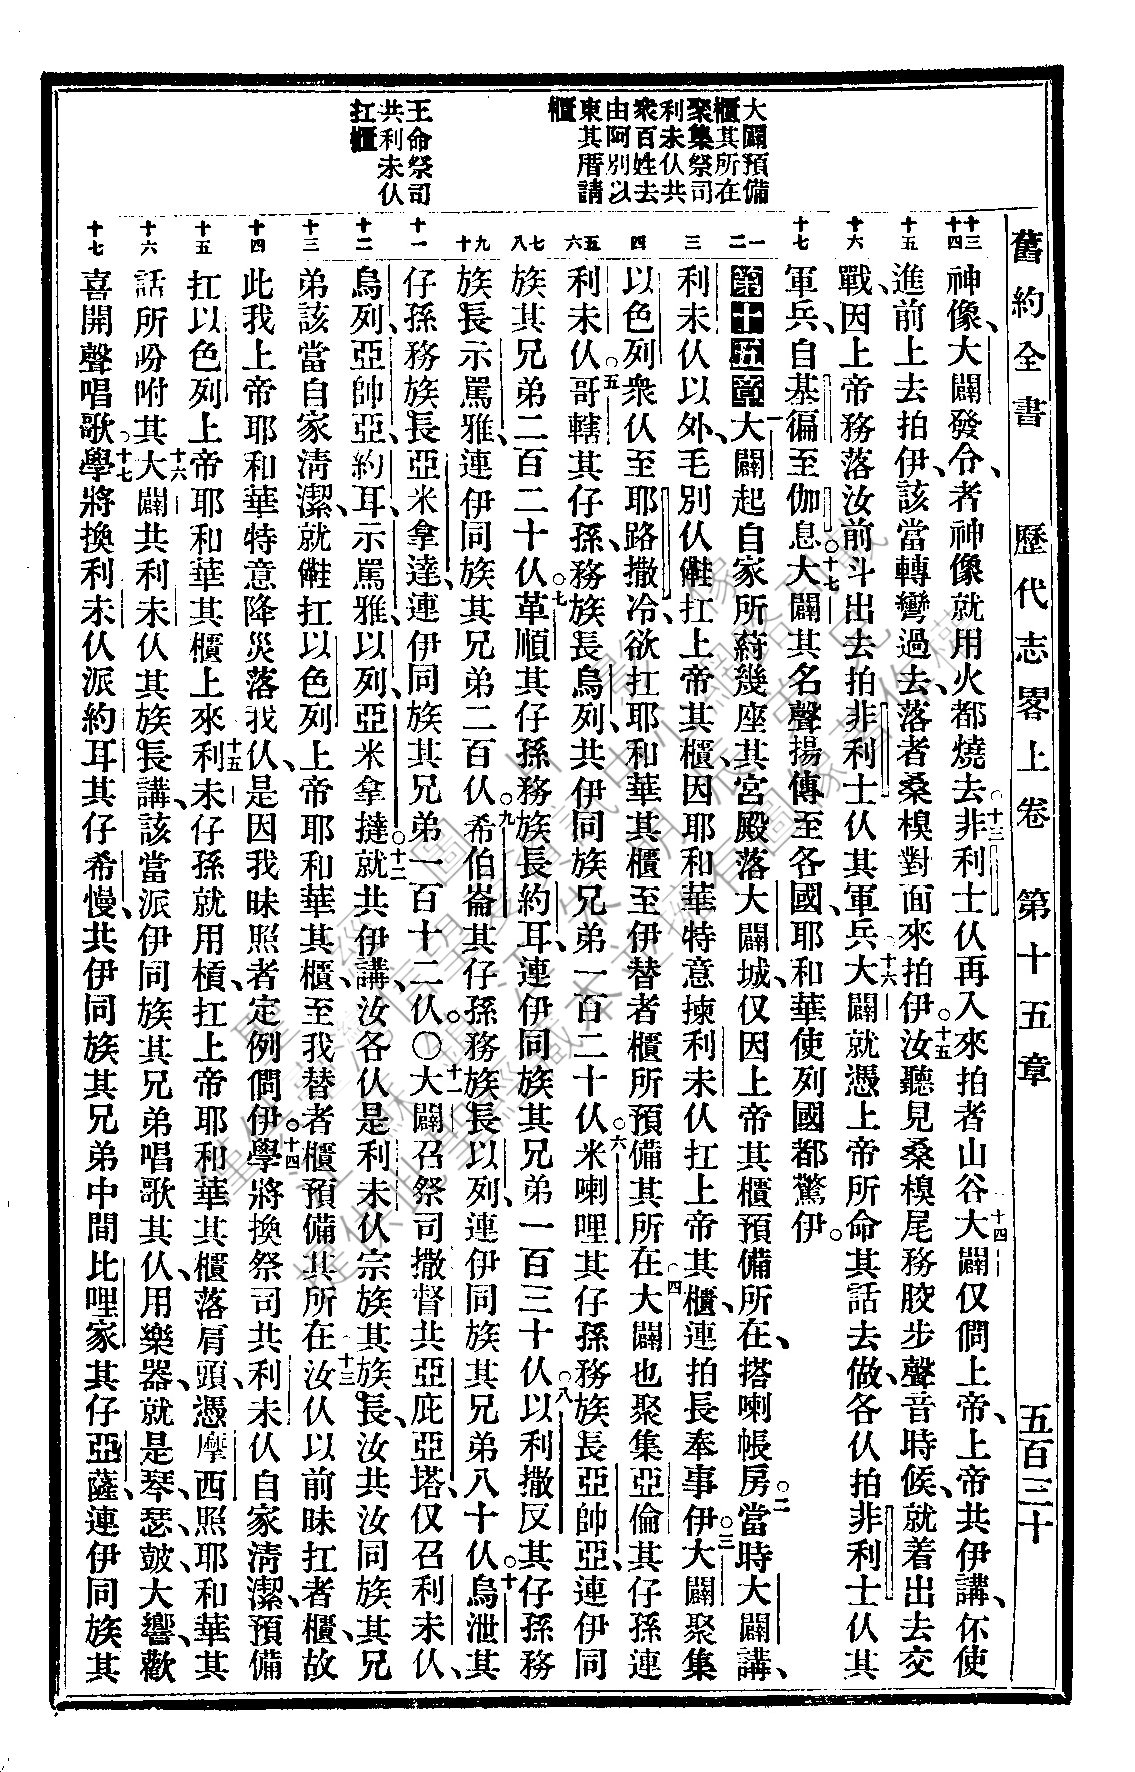 舊約全書 歷代志畧上卷 第十五章 五百三十
大闢預備
櫃其所在
聚集祭司
利未仈共
衆百姓去
由阿別以
東其厝請
櫃
王命祭司
共利未仈
扛櫃
十三 十四
神像、大闢發令、者神像就用火都燒去。十三非利士仈再入來拍者山谷十四大闢仅問上帝、上帝共伊講、伓使
十五
進前上去拍伊、該當轉彎過去、落者桑模對面來拍伊。十五汝聽見桑模尾務跤步聲音時候、就着出去交
十六
戰、因上帝務落汝前斗出去拍非利士仈其軍兵。十六大闢就憑上帝所命其話去做、各仈拍非利士仈其
十七
軍兵、自基徧至伽息。十七大闢其名聲揚傳至各國、耶和華使列國都驚伊。
一 二
第十五章 一大闢起自家所蒔幾座其宮殿落大闢城、仅因上帝其櫃預備所在、搭喇帳房。二當時大闢講、
三
利未仈以外、毛別仈㒕扛上帝其櫃、因耶和華特意揀利未仈扛上帝其櫃、連拍長奉事伊。三大闢聚集
四
以色列衆仈至耶路撒冷、欲扛耶和華其櫃至伊替者櫃所預備其所在。四大闢也聚集亞倫其仔孫連
五 六
利未仈。五哥轄其仔孫、務族長烏列、共伊同族兄弟一百二十仈。六米喇哩其仔孫務族長亞帥亞、連伊同
七 八
族其兄弟二百二十仈。七革順其仔孫務族長約耳、連伊同族其兄弟一百三十仈。八以利撒反其仔孫務
九 十
族長示罵雅、連伊同族其兄弟二百仈。九希伯崙其仔孫務族長以列、連伊同族其兄弟八十仈。十烏泄其
十一
仔孫務族長亞米拿達、連伊同族其兄弟一百十二仈。〇十一大闢召祭司撒督共亞庇亞塔、仅召利未仈、
十二
烏列、亞帥亞、約耳、示罵雅、以列、亞米拿撻。十二就共伊講、汝各仈是利未仈宗族其族長、汝共汝同族其兄
十三
弟該當自家淸潔、就㒕扛以色列上帝耶和華其櫃、至我替者櫃預備其所在。十三汝仈以前昧扛者櫃、故
十四
此我上帝耶和華特意降災落我仈、是因我昧照者定例問伊。十四學將換祭司共利未仈自家淸潔、預備
十五
扛以色列上帝耶和華其櫃上來。十五利未仔孫就用槓、扛上帝耶和華其櫃落肩頭、憑摩西照耶和華其
十六
話所吩咐其。十六大闢共利未仈其族長講、該當派伊同族其兄弟唱歌其仈、用樂器、就是琴、瑟、鼓、大響、歡
十七
喜開聲唱歌。十七學將換利未仈派約耳其仔希慢、共伊同族其兄弟中間比哩家其仔亞薩、連伊同族其